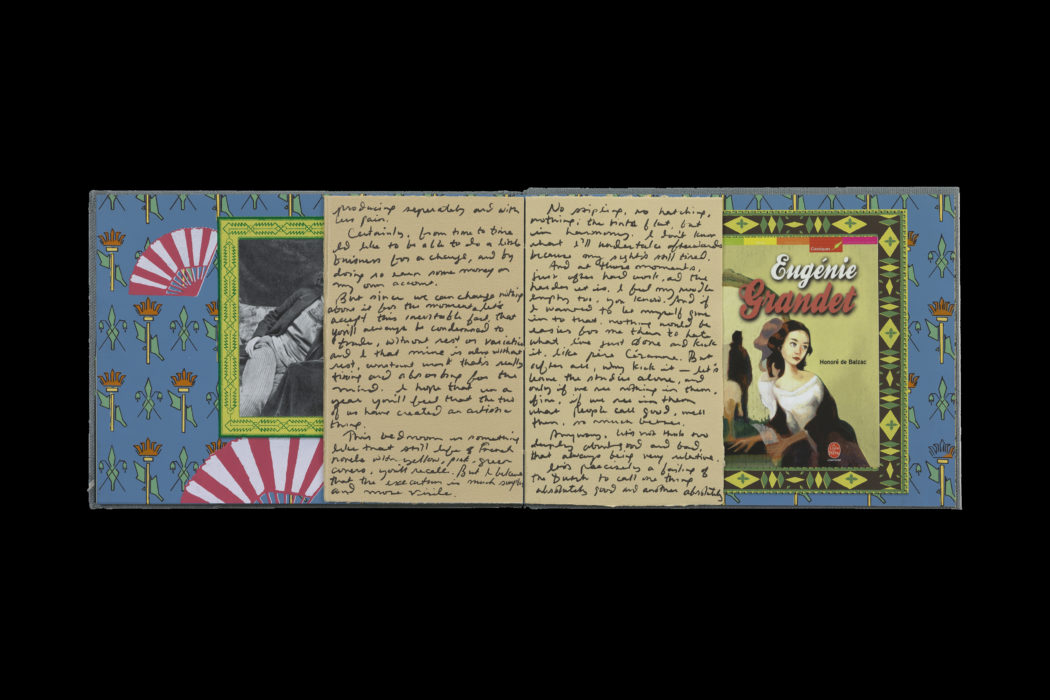 producing seperately and with
less pain.
Certainly, from time to time
I'd like to be able to do a little
business for a change, and by
doing so earn some money on
my own account.
But since we can change nothing
about it for the moment, let's
accept this inevitable fact, that
you'll always be condemned to
trade, without rest or variation
and I that mine is also without
rest, constant work that's really
tiring and absorbing for the
mind. I hope that in a
year you'll feel that the two
of us have created an artistic
thing.
This bedroom is something
like that still life of French
novels with yellow, pink, green
covers, you'll recall. But I believe
that the execution is much simpler
and more virile.
No stippling, no hatching,
nothing; the tints flat, but
in harmony. I don't know
what I'll undertake afterwards
because my sight's still tired.
And at those moments,
just after hard work, and the
harder it is, I feel my noodle
empty too, you know. And if
I wanted to let myself give
in to that, nothing would be
easier for me than to hate
what I've just done and kick
it, like père Cézanne. But
after all, why kick it — let's
leave the studies alone, and
only if we see nothing in them,
fine, if we see in them
what people call good, well
then, so much better.
Anyway, let's not think too
deeply about good and bad,
that always being very relative.
It's precisely a failing of
the Dutch to call one thing
absolutely good and another absolutely
Classiques
Eugénie
Grandet
Honoré de Balzac